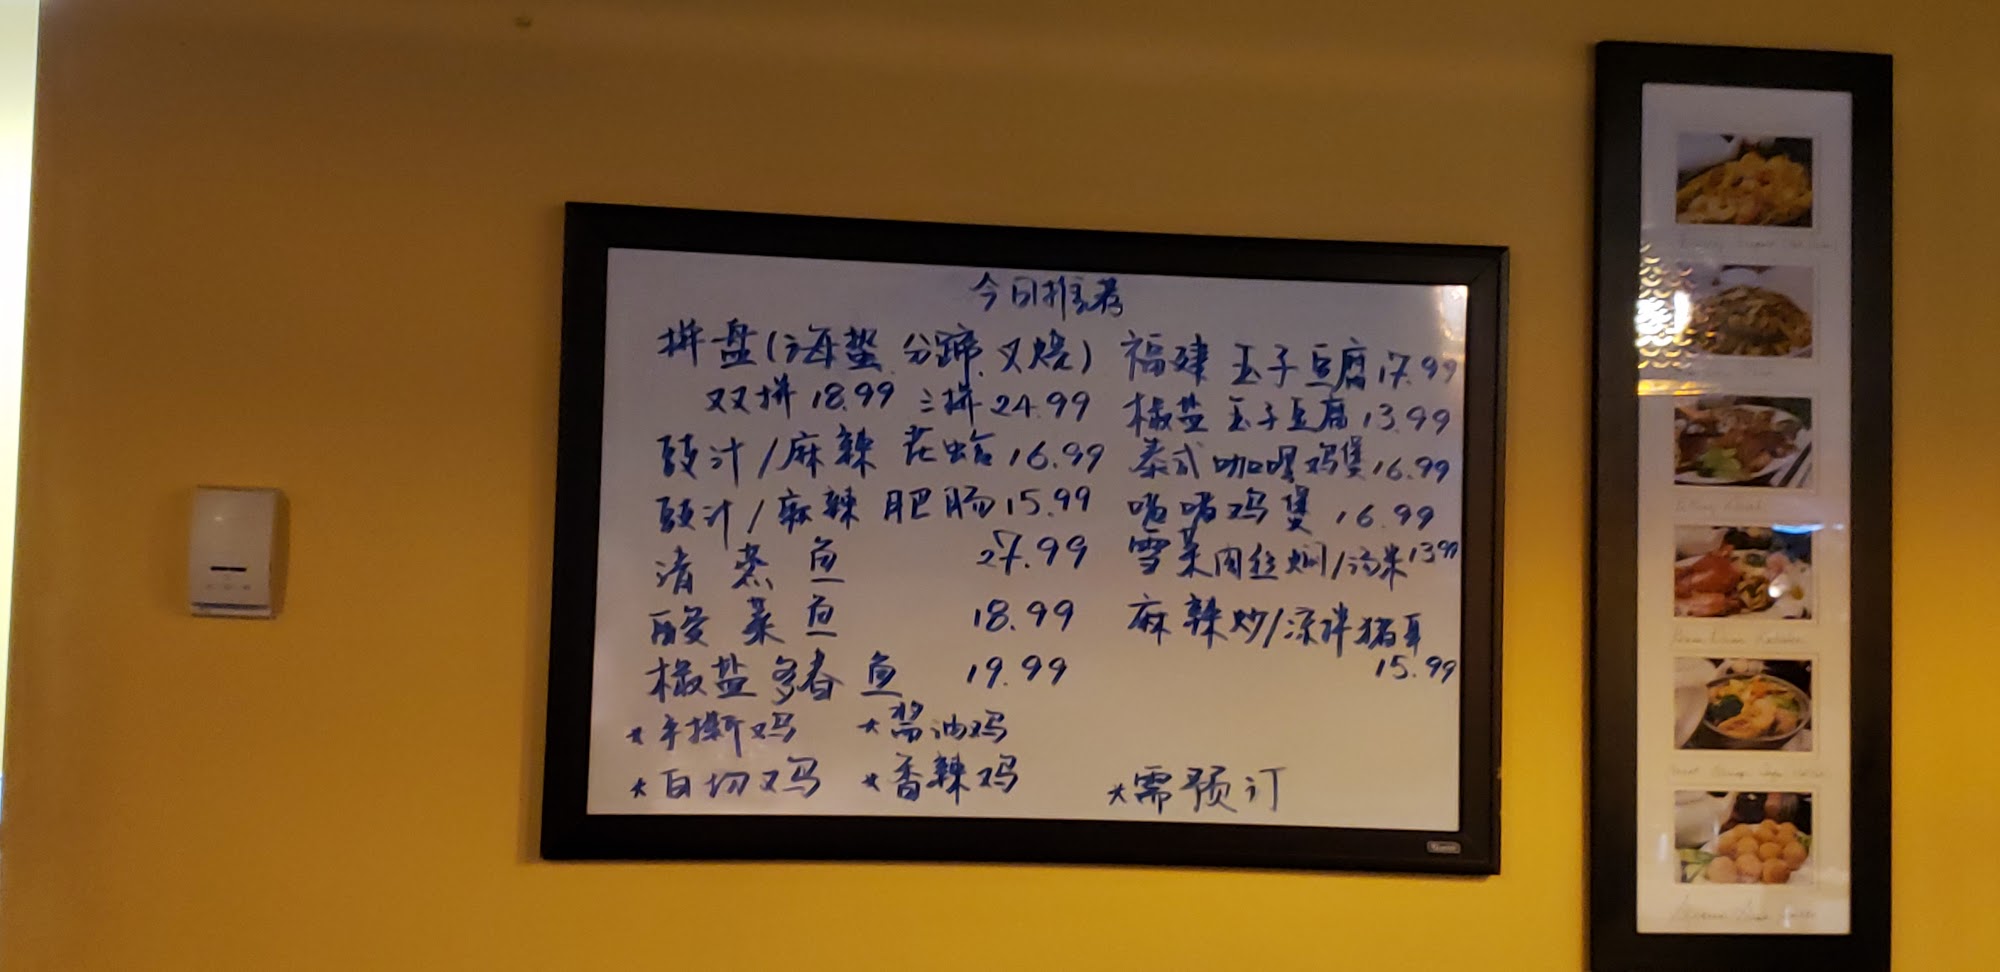 今日推荐
拼盘(海蜇.分蹄.叉烧)
双拼 18.99 三拼 24.99
豉汁/麻辣 花蛤 16.99
豉汁/麻辣 肥肠 15.99
清蒸鱼 27.99
酸菜鱼 18.99
椒盐多春鱼 19.99
*手撕鸡 *酱油鸡
*白切鸡 *香辣鸡
福建玉子豆腐 17.99
椒盐玉子豆腐 13.99
泰式咖喱鸡煲 16.99
啫啫鸡煲 16.99
雪菜肉丝焖/汤米 13.99
麻辣炒/凉拌猪耳
15.99
*需预订